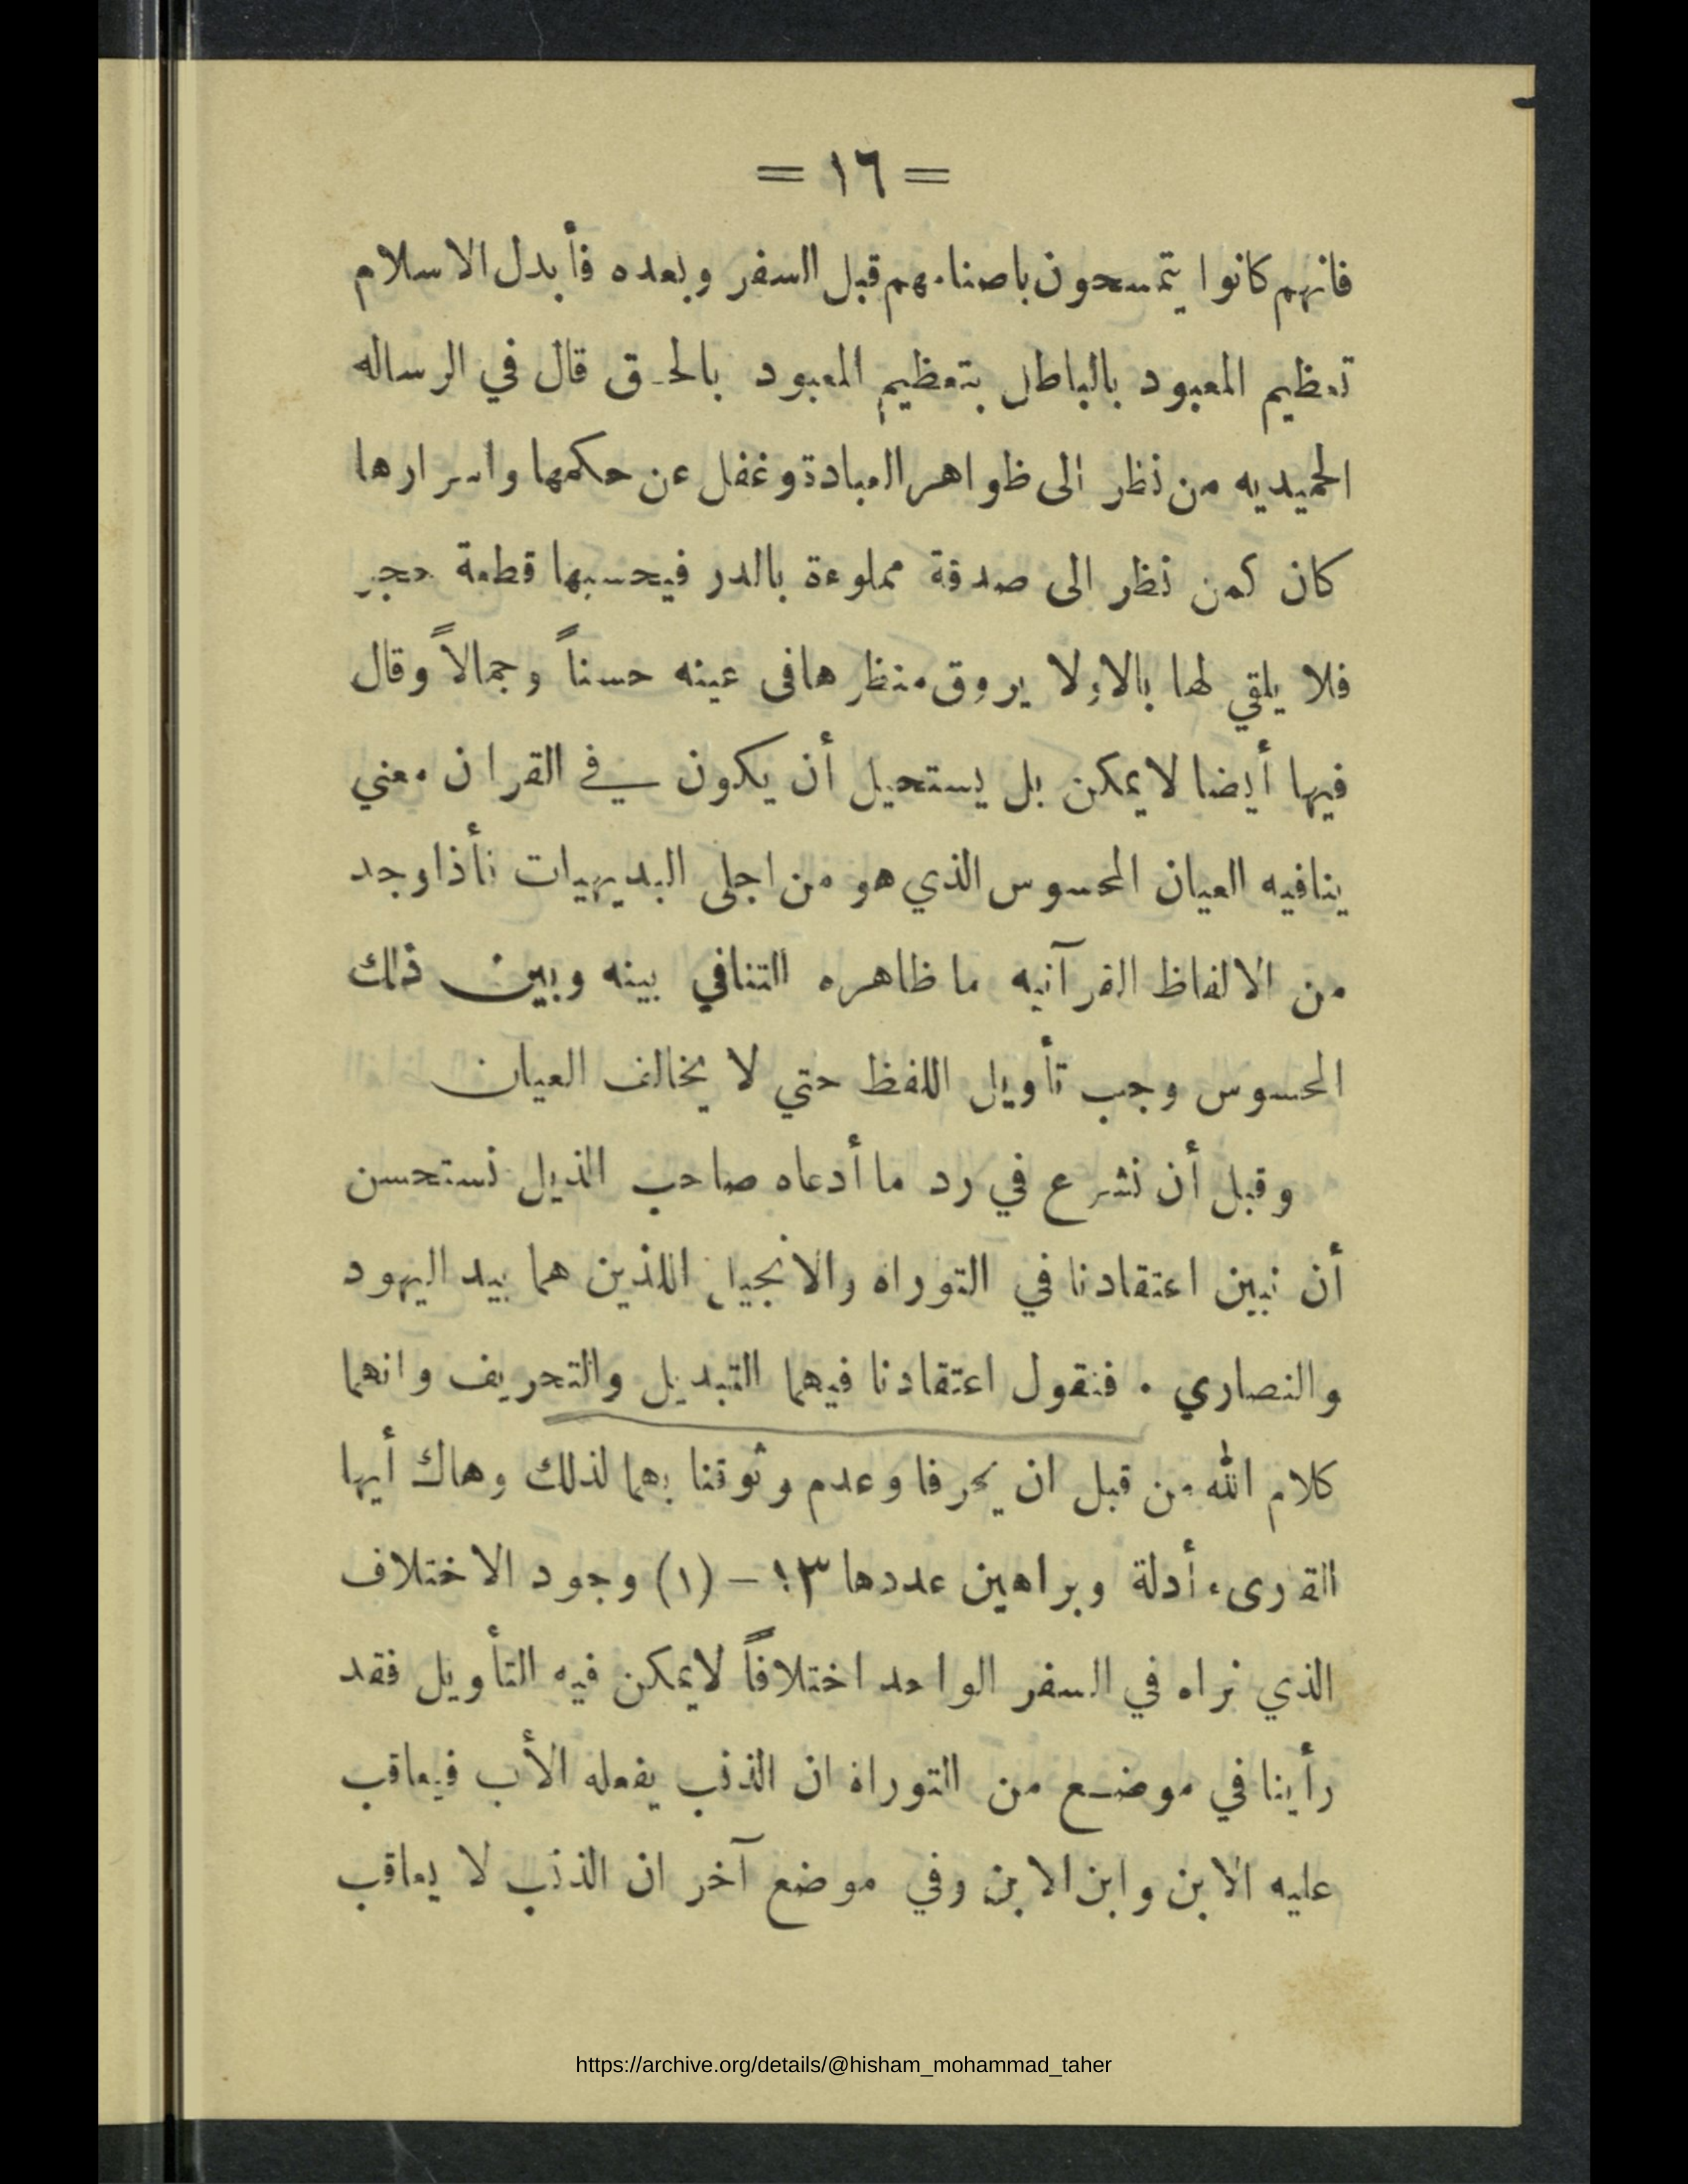 = ١٦ =
فانهم كانوا يتمسحون باصنامهم قبل السفر وبعده فأبدل الاسلام
تعظيم المعبود بالباطل بتعظيم المعبود بالحق قال في الرساله
الحميديه من نظر الى ظواهر العبادة وغفل عن حكمها واسرارها
كان كمن نظر الى صدقة مملوءة بالدر فيحسبها قطعة حجر
فلا يلقي لها بالا ولا يروق منظرها فى عينه حسناً وجمالاً وقال
فيها أيضا لا يمكن بل يستحيل أن يكون في القران معني
ينافيه العيان المحسوس الذي هو من اجلى البديهيات فأذا وجد
من الالفاظ القرآنيه ما ظاهره التنافي بينه وبين ذلك
المحسوس وجب تأويل اللفظ حتي لا يخالف العيان
وقبل أن نشرع في رد ما أدعاه صاحب الذيل نستحسن
أن نبين اعتقادنا في التوراه والانجيل اللذين هما بيد اليهود
والنصاري . فنقول اعتقادنا فيهما التبديل والتحريف وانهما
كلام الله من قبل ان يحرفا وعدم وثوقنا بهما لذلك وهاك أيها
القارىء أدلة وبراهين عددها ١٣ – (١) وجود الاختلاف
الذي نراه في السفر الواحد اختلافاً لا يمكن فيه التأويل فقد
رأينا في موضع من التوراة ان الذنب يفعله الأب فيعاقب
عليه الابن وابن الابن وفي موضع آخر ان الذنب لا يعاقب
https://archive.org/details/@hisham_mohammad_taher